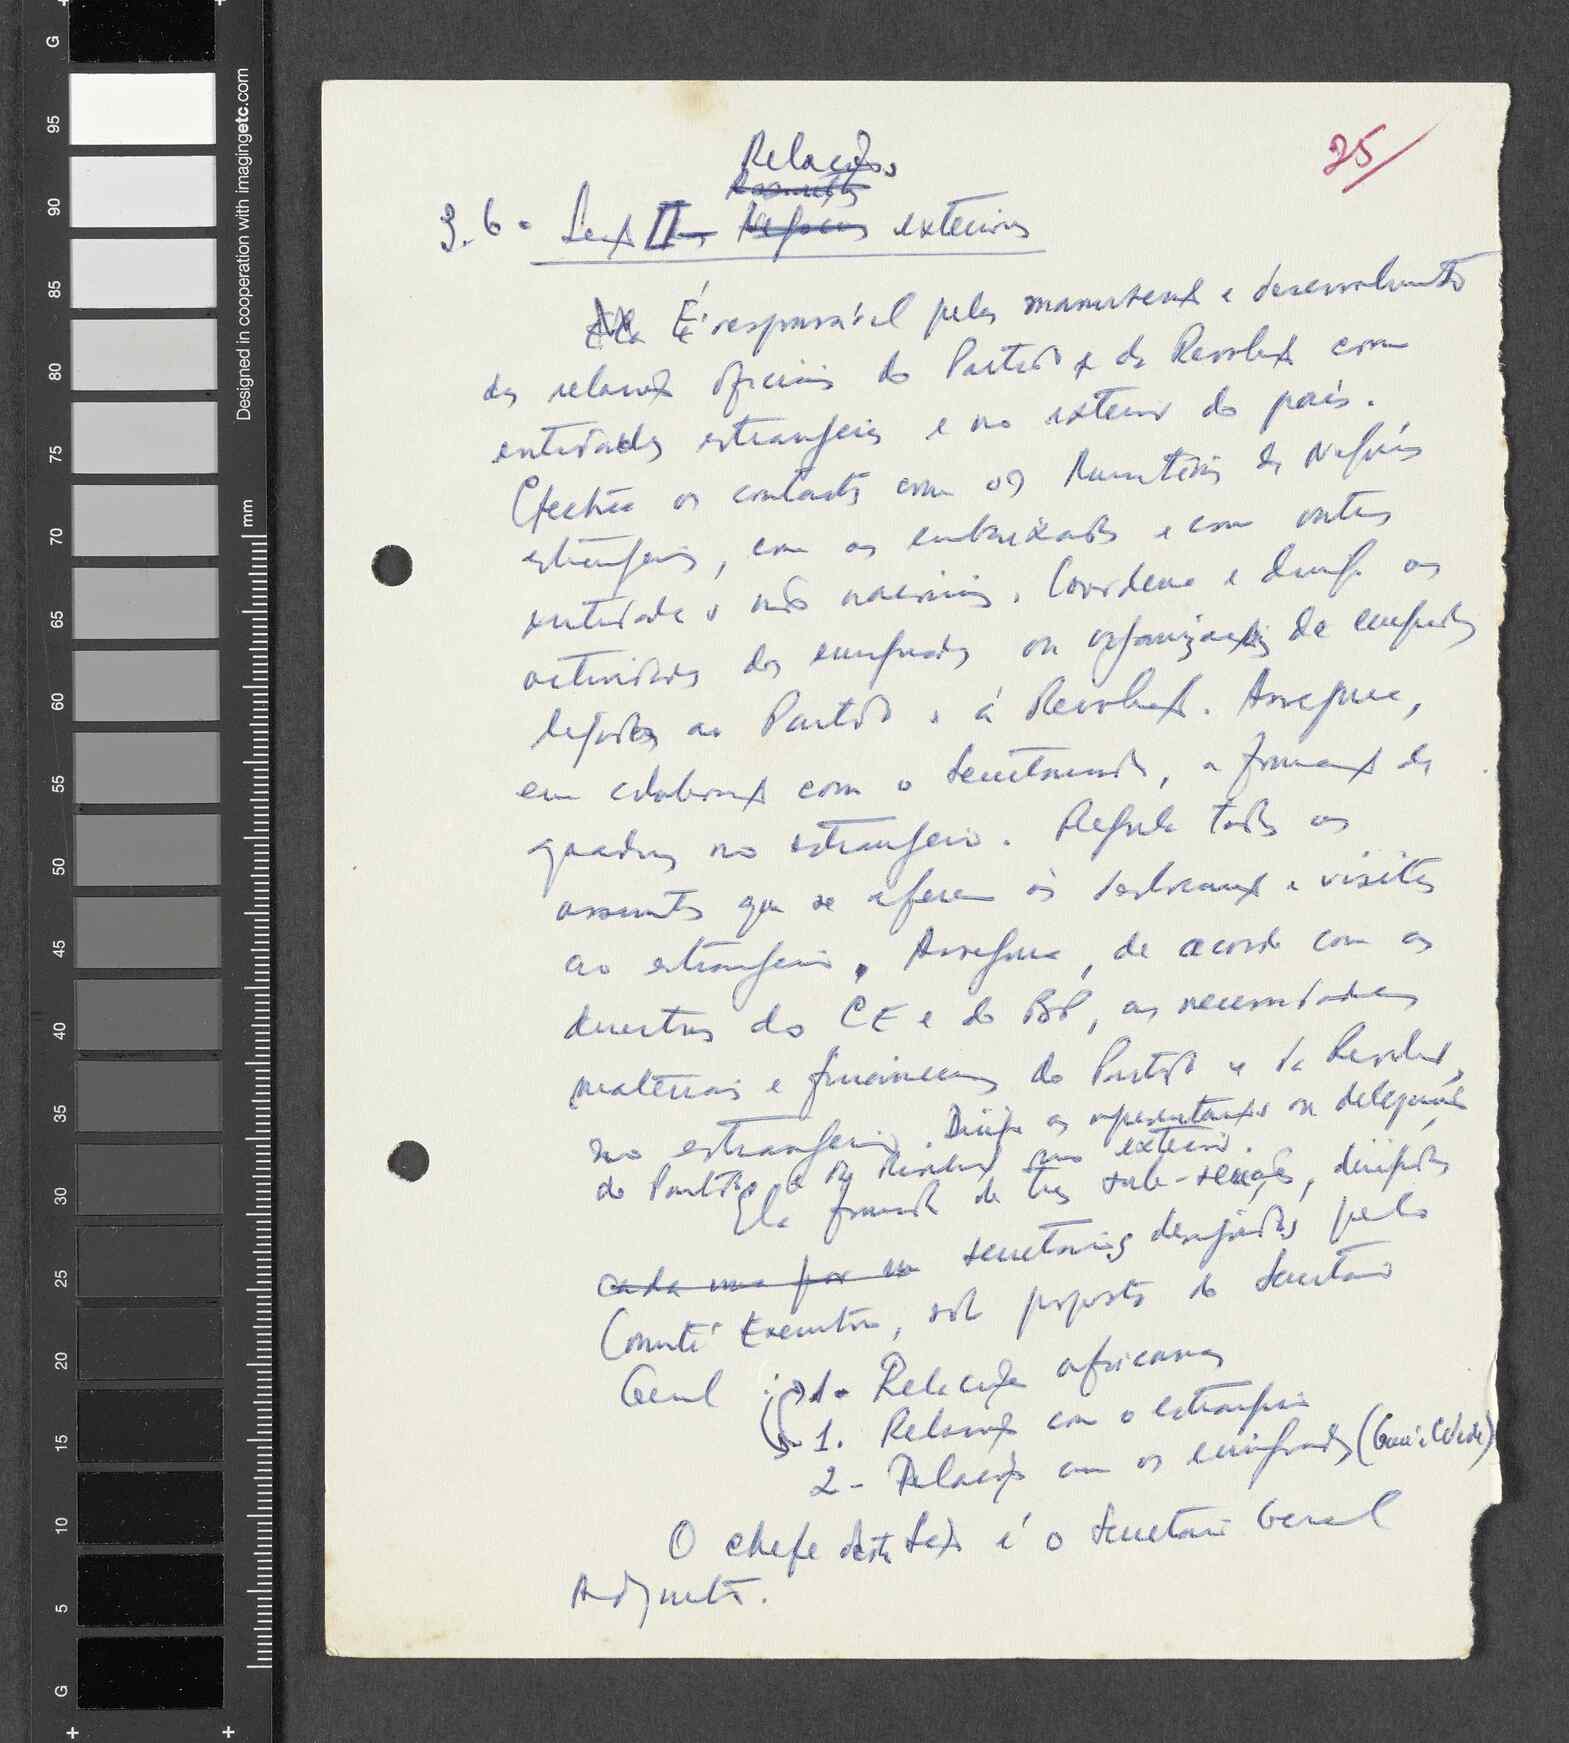 25
Relações
Assuntos
3.6. Secção II - Negócios exteriores
Ela É responsável pela manutenção e desenvolvimento
das relações oficiais do Partido e da Revolução com
entidades estrangeiras e no exterior do país.
Efectua os contactos com os Ministérios de Negócios
estrangeiros, com as embaixadas e com outras
entidades não nacionais. Coordena e dirige as
actividades dos emigrados ou organizações de emigrados
ligados ao Partido e à Revolução. Assegura,
em colaboração com o Secretariado, a formação de
quadros no estrangeiro. Regula todos os
assuntos que se referem às deslocações e visitas
ao estrangeiro. Assegura, de acordo com as
directivas do CE e do BP, as necessidades
materiais e financeiras do Partido e da Revolução,
no estrangeiro. Dirige as representações ou delegações
do Partido e da Revolução no exterior.
Ela formada de três sub-secções, dirigidas
cada uma por um secretários designados pelo
Comité Executivo, sob proposta do Secretário
Geral: 1. Relações africanas
1. Relações com o estrangeiro
2 - Relações com os emigrados (Guiné C. Verde)
O chefe desta Secção é o Secretário Geral
Adjunto.
G
95
90
85
80
75
70
65
60
55
50
45
40
35
30
25
20
15
10
5
G
mm
Designed in cooperation with imagingetc.com